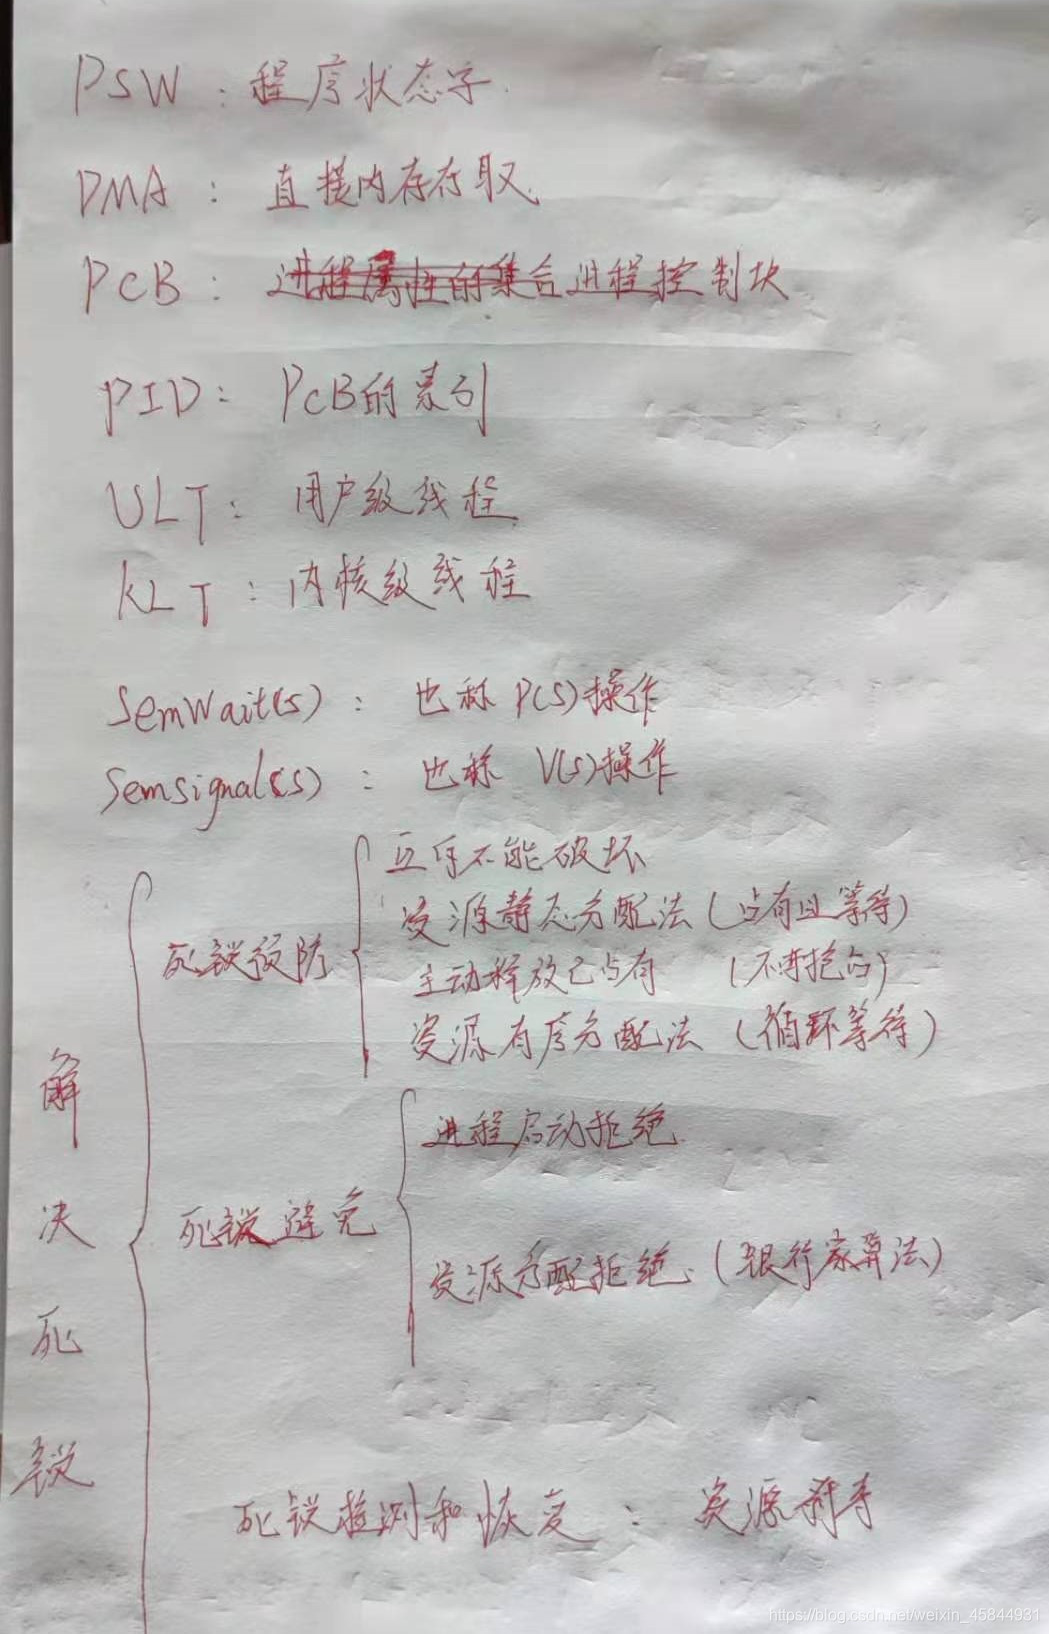 PSW : 程序状态字
DMA : 直接内存存取.
PCB : 进程属性的集合 进程控制块
PID : PCB的索引
ULT : 用户级线程.
KLT : 内核级线程
SemWait(s) : 也称 P(S)操作
Semsignal(s) : 也称 V(s)操作
解决死锁
死锁预防
互斥不能破坏
资源静态分配法 (占有且等待)
主动释放已占有 (不再抢占)
资源有序分配法 (循环等待)
死锁避免
进程启动拒绝
资源分配拒绝. (银行家算法)
死锁检测和恢复 : 资源剥夺
https://blog.csdn.net/weixin_45844931